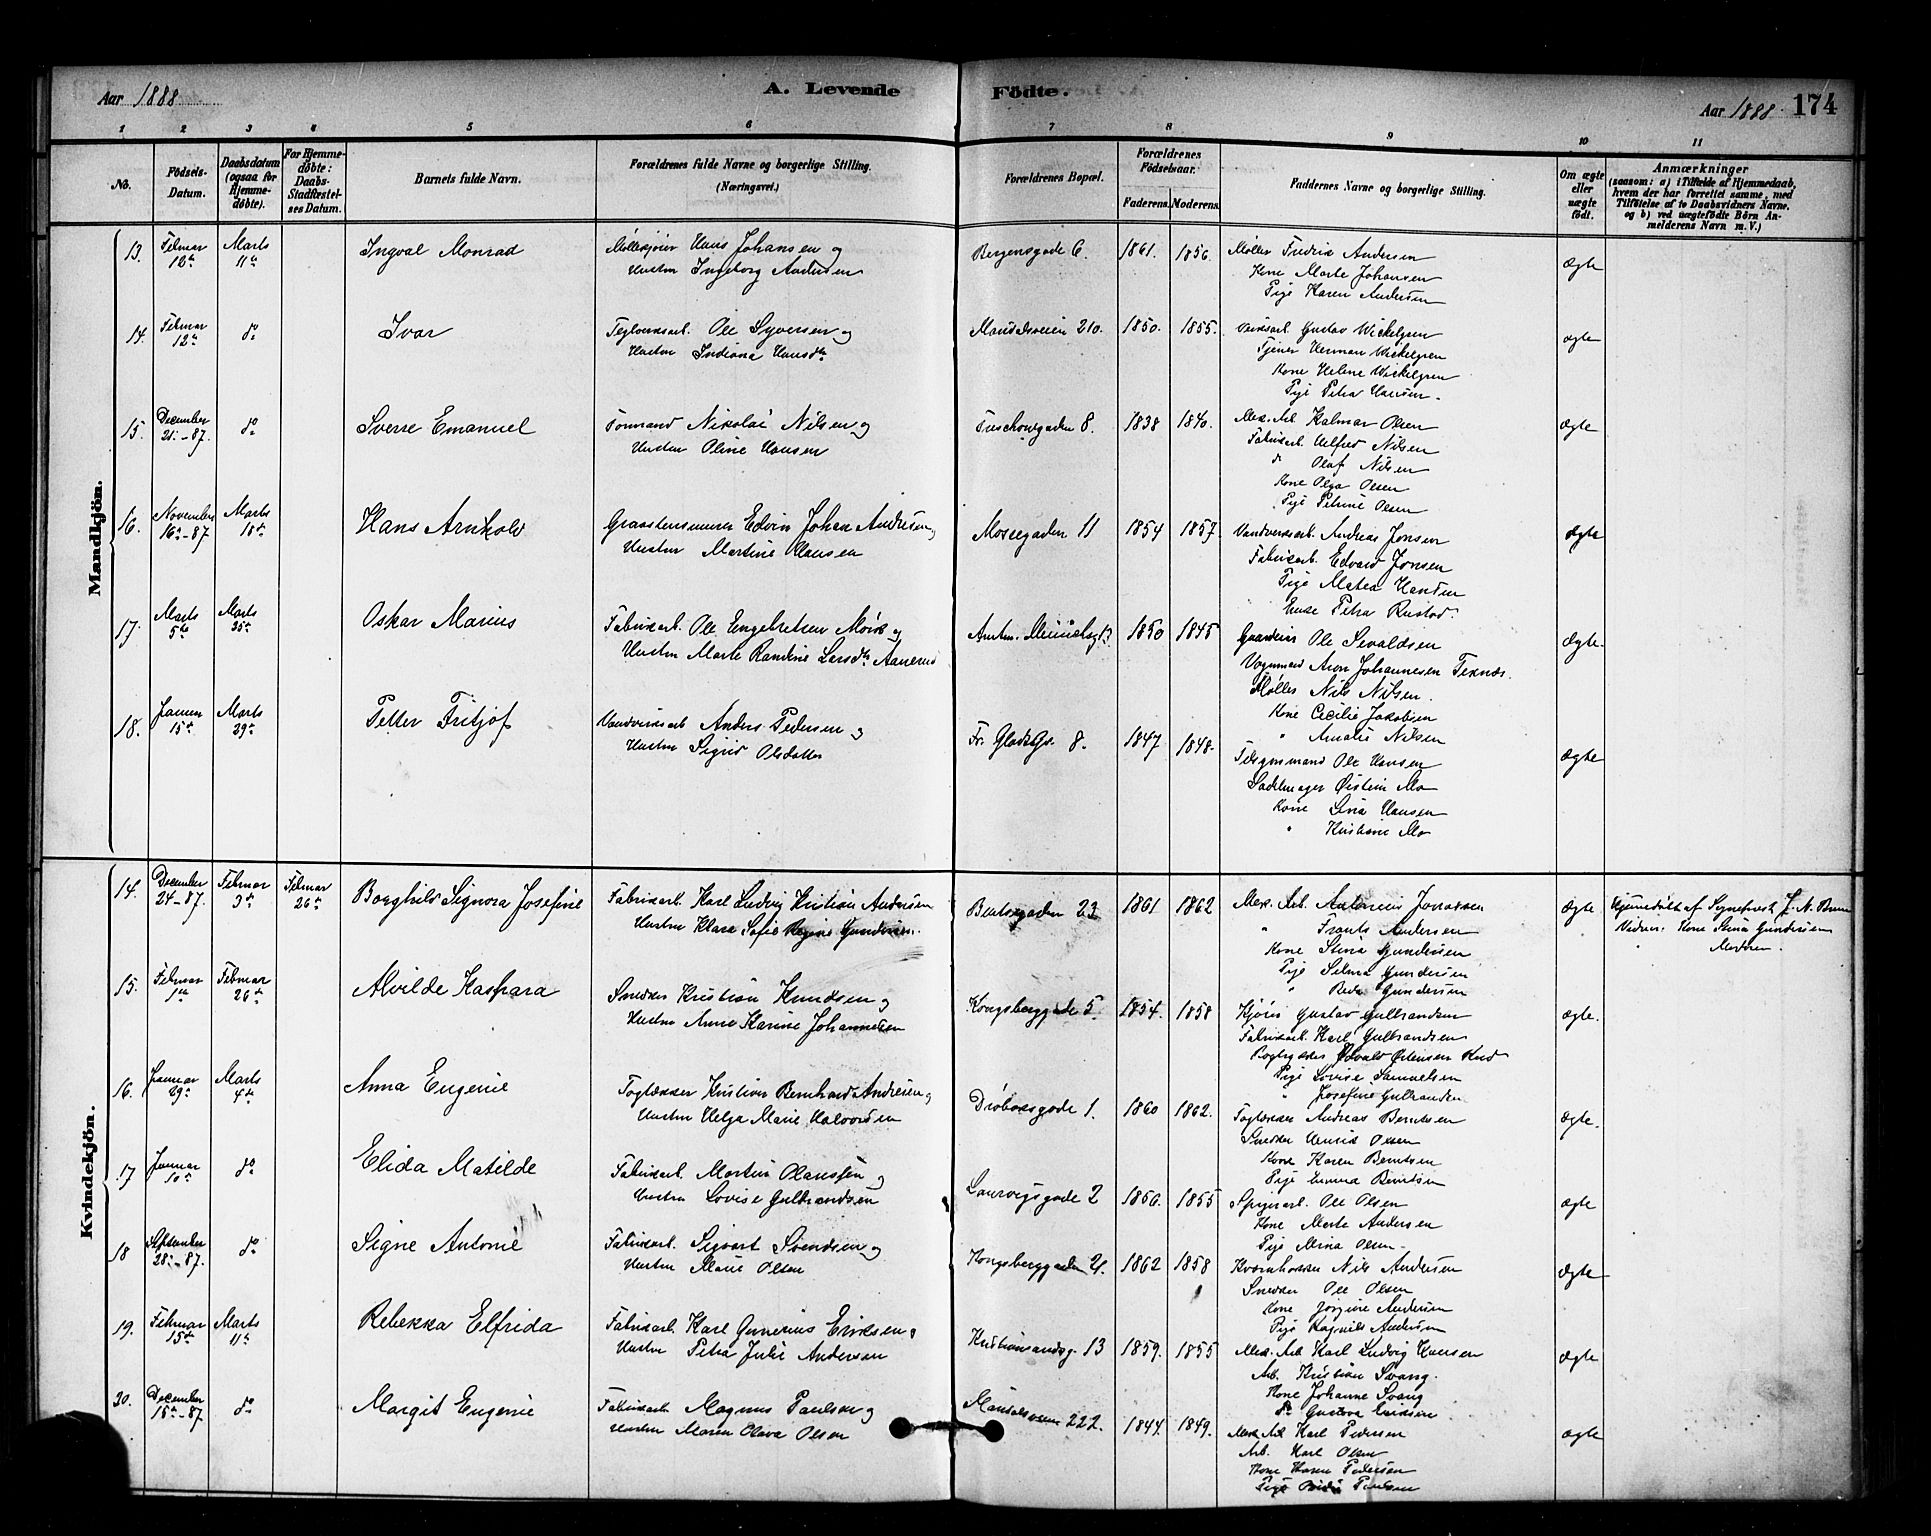 Aar 1888
A. Levende Födte.
Aar 1888. 174
1 2 3 4 5 6 7 8 9 10 11
No.
Födsels-Datum.
Daabsdatum (ogsaa for Hjemme-döbte).
For Hjemme-döbte: Daabs-Stadfæstel-ses Datum.
Barnets fulde Navn.
Forældrenes fulde Navne og borgerlige Stilling. (Næringsvei.)
Forældrenes Bopæl.
Forældrenes Födselsaar.
Faderens. Moderens.
Faddernes Navne og borgerlige Stilling.
Om ægte eller uægte födt.
Anmærkninger
(saasom: a) i Tilfælde af Hjemmedaab, hvem der har forrettet samme, med Tilföielse af to Daabsvidners Navne. og b) ved uægtefödte Börn An-melderens Navn m. V.)
Mandkjön.
13. Februar 12te Marts 11te Ingval Monrad
Hans Johansen og
Hustru Ingeborg Andersen
Bergensgade 6. 1861. 1856.
Møller Fredrik Andersen
Kone Marte Johansen
Pige Karen Andersen
Ægte
14. Februar 12te do Ivar
Teglverksarb. Ole Syversen og
Hustru Indiana Hansdtr
210. 1850. 1855.
Gustav Wickelgren
Tjener Herman Wickelgren
Kone Helene Wickelgren
Pige Petra Hansen.
ægte
15. December 21-87. do Sverre Emanuel
Formand Nikolai Nilsen og
Hustru Oline Hansen
Treschowsgaden 8. 1838 1840.
Mek. Arb. Halmar Olsen
Fabrikarb. Alfred Nilsen
do Olaf Nilsen
Kone Olga Olsen
Pige Petrine Olsen
ægte
16. November 16-87 Marts 18de Hans Arnholdt
Graastensmurer Edvin Johan Andersen og
Hustru Martine Hansen
Mossegaden 11 1854 1857.
Andreas Jonsen
Fabrikarb. Edvard Jonsen
Pige Matea Hansen
Enke Petra Rustad.
ægte
17. Marts 5te Marts 25de Oskar Marius
Fabrikarb. Ole Engebretsen Mörk og
Hustru Marte Randine Larsdtr Aanerud
1850 1845
Ole Sevaldsen
Vognmand Aron Johannesen Teknæs.
Møller Nils Nilsen.
Kone Cecilie Jakobsen
" Amalie Nilsen
Ægte.
18. Januar 15de Marts 29de Petter Fritjof
Anders Pedersen og
Hustru Sigrid Olsdatter
Fr. Gladsgs. 8. 1847 1848.
Ole Hansen
Sadelmager Øistein Mo
Kone Lina Hansen
" Kristiane Mo
Ægte
Kvindekjön.
14. December 24-87. Februar 3de Februar 26de Borghild Signora Josefine
Fabrikarb. Karl Ludvig Kristian Andersen
Hustru Klara Sofie Regine Gundersen.
Bentsegaden 23 1861 1862
Mek. Arb. Antonius Jonassen
" Frants Andersen
Kone Stina Gundersen
Pige Selma Gundersen
" Gundersen
Ægte
Hjemdøbt af Sognepræst J. N. Brun
Vidner: Kone Stina Gundersen
" Moderen.
15. Februar 1ste Februar 26de Alvilde Kaspara
Snedker Kristian Knudsen og
Hustru Anne Karine Johannesen
Kongsberggade 5. 1854. 1858
Gustav Gulbrandsen
Fabrikarb. Karl Gulbrandsen
Pige Lovise Samuelsen
" Josefine Gulbrandsen
Ægte.
16. Januar 29de Marts 4de Anna Eugenie
Kristian Bernhard Andresen og
Hustru Helga Marie Halvorsen
Drøbaksgade 1. 1860 1862.
Andreas Berntsen
Snedker Henrik Olsen
Kone Karen Berntsen
Pige Emma Berntsen
Ægte.
17 Januar 10de do Elida Matilde
Fabrikarb. Martin Olaussen og
Hustru Lovise Gulbrandsen
Laurvigsgade 2 1850. 1855
Ole Olsen
Kone Marte Andersen
Pige Mina Olsen.
ægte
18 September 28-87. do Signe Antonie
Fabrikarb. Sigvart Svendsen og
Hustru Marie Olsen
Kongsberggaden 21. 1862 1858
Nils Andersen
Snedker Ole Olsen
Kone Jørgine Andersen
Pige Ragnhild Andersen
Ægte
19. Februar 15de Marts 11te Rebekka Elfrida
Fabrikarb. Karl Gunerius Eriksen og
Hustru Petra Julie Andersen
Kristiansandsg. 13 1859. 1855
Mek. Arb Karl Ludvig Hansen
Arb. Kristian Svang.
Kone Johanne Svang
do Gustava Eriksen
Ægte
20. December 15-87. do Margit Eugenie
Fabrikarb. Magnus Paulsen og
Hustru Maren Olava Olsen
222. 1844. 1849.
Mek Arb Karl Pedersen
Arb. Karl Olsen
Kone Karen Pedersen
Pige Paulsen
ægte